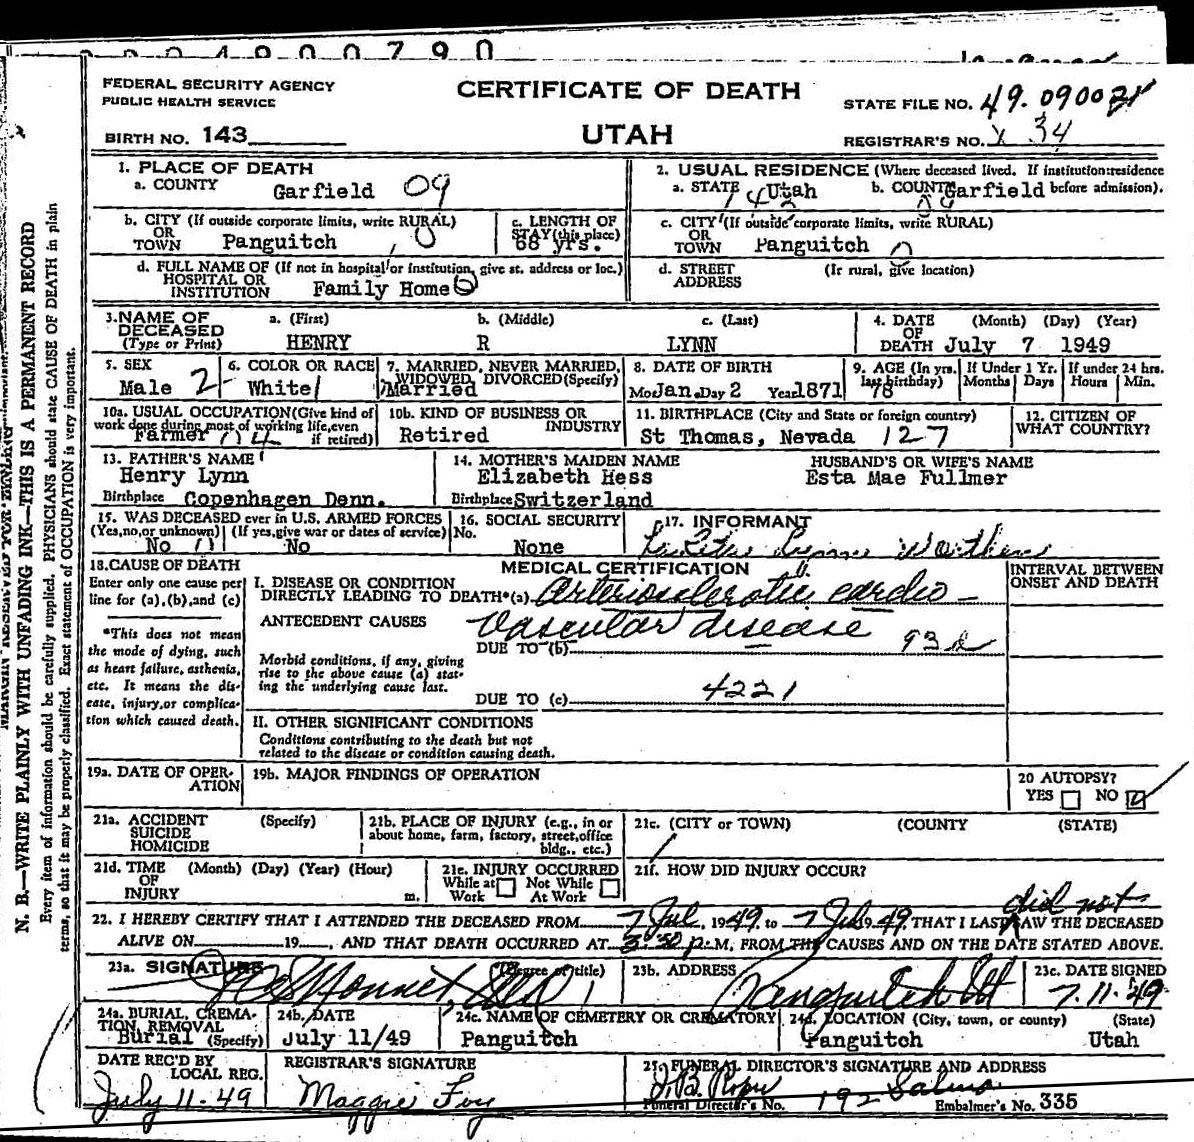 0004900790
FEDERAL SECURITY AGENCY
PUBLIC HEALTH SERVICE
CERTIFICATE OF DEATH
STATE FILE NO. 49.0900
BIRTH NO. 143
UTAH
REGISTRAR'S NO. X 34
1. PLACE OF DEATH
a. COUNTY Garfield 09
2. USUAL RESIDENCE (Where deceased lived. If institution:residence before admission).
a. STATE Utah b. COUNTY Garfield
b. CITY (If outside corporate limits, write RURAL) OR TOWN Panguitch
c. LENGTH OF STAY (this place) 68 yrs.
c. CITY (If outside corporate limits, write RURAL) OR TOWN Panguitch
d. FULL NAME OF (If not in hospital or institution, give st. address or loc.) HOSPITAL OR INSTITUTION Family Home
d. STREET ADDRESS (If rural, give location)
3. NAME OF DECEASED (Type or Print) a. (First) HENRY b. (Middle) R c. (Last) LYNN
4. DATE OF DEATH (Month) (Day) (Year) July 7 1949
5. SEX Male 2
6. COLOR OR RACE White
7. MARRIED, NEVER MARRIED, WIDOWED, DIVORCED (Specify) Married
8. DATE OF BIRTH Mo. Jan. Day 2 Year 1871
9. AGE (In yrs. last birthday) 78 If Under 1 Yr. Months Days If under 24 hrs. Hours Min.
10a. USUAL OCCUPATION (Give kind of work done during most of working life, even if retired) Farmer 114
10b. KIND OF BUSINESS OR INDUSTRY Retired
11. BIRTHPLACE (City and State or foreign country) St Thomas, Nevada 127
12. CITIZEN OF WHAT COUNTRY?
13. FATHER'S NAME Henry Lynn
Birthplace Copenhagen Denn.
14. MOTHER'S MAIDEN NAME Elizabeth Hess
Birthplace Switzerland
HUSBAND'S OR WIFE'S NAME Esta Mae Fullmer
15. WAS DECEASED ever in U.S. ARMED FORCES (Yes, no, or unknown) No (If yes, give war or dates of service) No
16. SOCIAL SECURITY No. None
17. INFORMANT Lynn
18. CAUSE OF DEATH
Enter only one cause per line for (a), (b), and (c)
*This does not mean the mode of dying, such as heart failure, asthenia, etc. It means the disease, injury, or complication which caused death.
MEDICAL CERTIFICATION
INTERVAL BETWEEN ONSET AND DEATH
I. DISEASE OR CONDITION DIRECTLY LEADING TO DEATH*(a) Arteriosclerotic cardio-
ANTECEDENT CAUSES Vascular disease
DUE TO (b) 93d
Morbid conditions, if any, giving rise to the above cause (a) stating the underlying cause last.
DUE TO (c) 4221
II. OTHER SIGNIFICANT CONDITIONS
Conditions contributing to the death but not related to the disease or condition causing death.
19a. DATE OF OPERATION
19b. MAJOR FINDINGS OF OPERATION
20 AUTOPSY?
YES NO
21a. ACCIDENT SUICIDE HOMICIDE (Specify)
21b. PLACE OF INJURY (e.g., in or about home, farm, factory, street, office bldg., etc.)
21c. (CITY or TOWN) (COUNTY) (STATE)
21d. TIME OF INJURY (Month) (Day) (Year) (Hour) m.
21e. INJURY OCCURRED While at Work Not While At Work
21f. HOW DID INJURY OCCUR?
did not
22. I HEREBY CERTIFY THAT I ATTENDED THE DECEASED FROM 7 Jul, 1949, to 7 Jul 1949, THAT I LAST SAW THE DECEASED
ALIVE ON 19, AND THAT DEATH OCCURRED AT 3:30 p.M, FROM THE CAUSES AND ON THE DATE STATED ABOVE.
23a. SIGNATURE (Degree or title)
23b. ADDRESS Panguitch Ut
23c. DATE SIGNED 7.11.49
24a. BURIAL, CREMATION, REMOVAL (Specify) Burial
24b. DATE July 11/49
24c. NAME OF CEMETERY OR CREMATORY Panguitch
24d. LOCATION (City, town, or county) (State) Panguitch Utah
DATE REC'D BY LOCAL REG. July 11-49
REGISTRAR'S SIGNATURE Maggie Foy
25. FUNERAL DIRECTOR'S SIGNATURE AND ADDRESS
Funeral Director's No. 192 Salina Embalmer's No. 335
N. B.—WRITE PLAINLY WITH UNFADING INK—THIS IS A PERMANENT RECORD
Every item of information should be carefully supplied. PHYSICIANS should state CAUSE OF DEATH in plain
terms, so that it may be properly classified. Exact statement of OCCUPATION is very important.